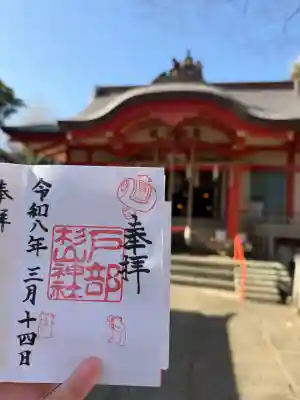 奉拝
戸部
杉山神社
令和八年 三月 十四日
奉拝